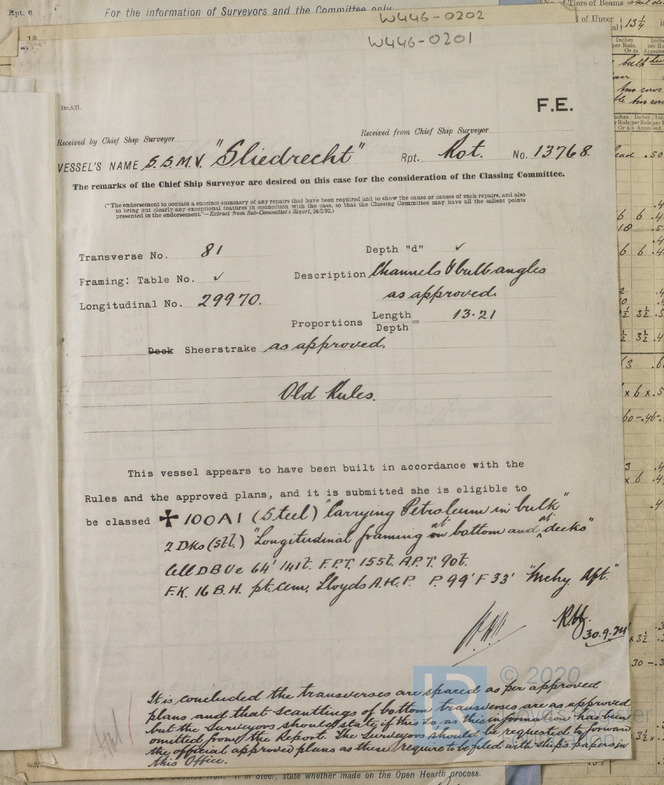 Rpt. 6.
For the information of Surveyors and the Committee only
W446-0202
W446-0201
F.E.
Received by Chief Ship Surveyor
Received from Chief Ship Surveyor
VESSEL'S NAME S.S.M.V. "Sliedrecht" Rpt. Rot. No. 13768.
The remarks of the Chief Ship Surveyor are desired on this case for the consideration of the Classing Committee.
("The endorsement to contain a succinct summary of any repairs that have been required and to show the cause or causes of such repairs, and also
to bring out clearly any exceptional features in connection with the case, so that the Classing Committee may have all the salient points
presented in the endorsement."—Extract from Sub-Committee's Report, 24/5/92.)
Transverse No. 81
Depth "d" ✓
Framing: Table No. ✓
Description Channels & bulb angles
as approved.
Longitudinal No. 29970.
Proportions Length / Depth = 13.21
Deck Sheerstrake as approved.
Old Rules.
This vessel appears to have been built in accordance with the
Rules and the approved plans, and it is submitted she is eligible to
be classed ✠ 100A1 (Steel) "Carrying Petroleum in bulk"
2 Dks (Stl) "Longitudinal framing at bottom and at decks"
Cell D B Ue 64' 141t. F.P.T. 155t. A.P.T. 90t.
F.K. 16 B.H. pt. Cem. Lloyds A.&C.P. P. 99' F 33' "Mchy Aft."
30.9.24
It is concluded the transverses are spaced as per approved
plans and that scantlings of bottom transverses are as approved
but the Surveyors should state if this is so as this information has been
omitted from the Report. The Surveyors should be requested to forward
the official approved plans as these require to be filed with ship's papers in
this Office.
© 2020
state whether made on the Open Hearth process.